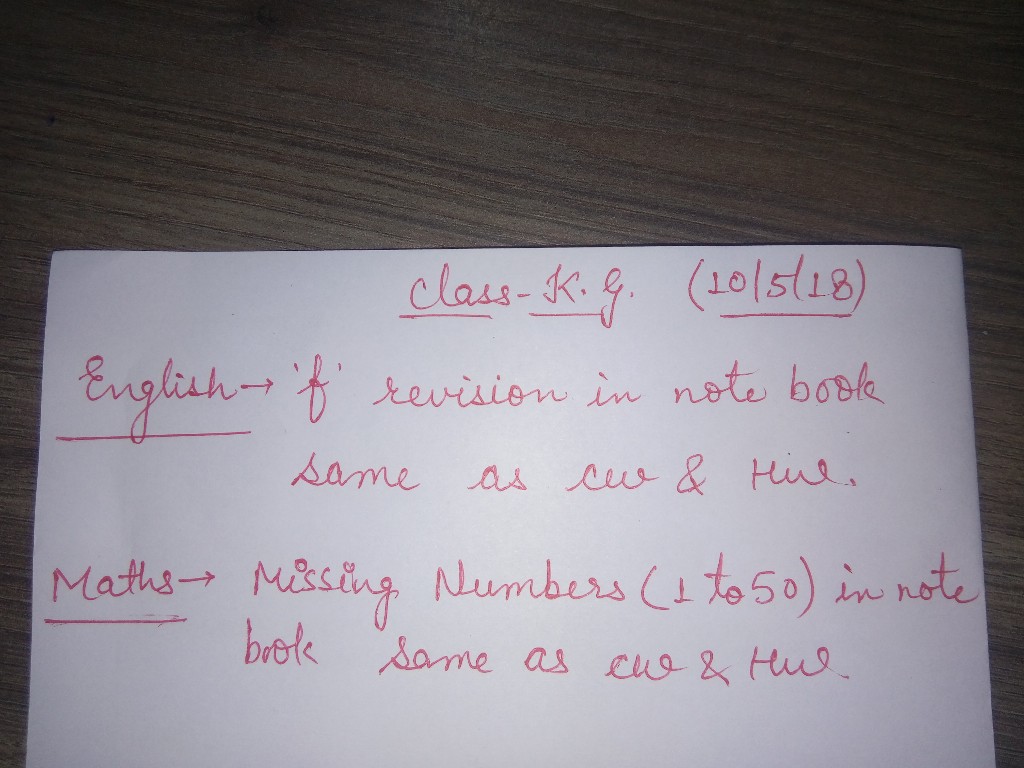 Class-K.G. (10/5/18)
English→ 'f' revision in note book
same as cw & Hw.
Maths→ Missing Numbers (1 to 50) in note
book same as cw & Hw